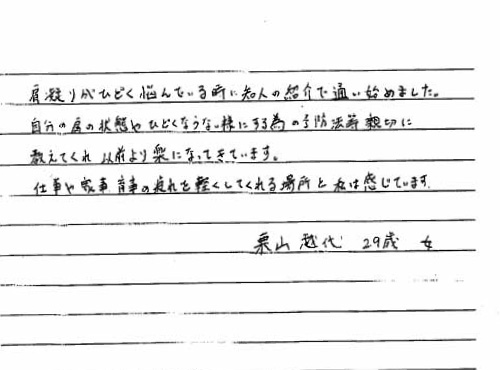 肩凝りがひどく悩んでいる時に知人の紹介で通い始めました。
自分の肩の状態やひどくならない様にする為の予防法等親切に
教えてくれ以前より楽になってきています。
仕事や家事育事の疲れを軽くしてくれる場所と私は感じています
栗山 越代 29歳 女